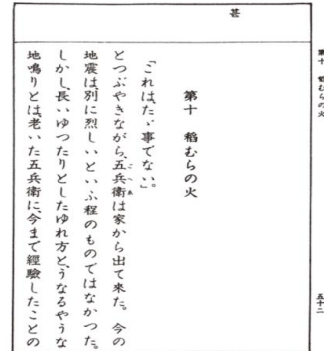 甚
第十 稻むらの火
「これは、たゞ事でない。」
とつぶやきながら、五兵衛は家から出て來た。今の
地震は、別に烈しいといふ程のものではなかつた。
しかし、長いゆつたりとしたゆれ方と、うなるやうな
地鳴りとは、老いた五兵衛に、今まで經驗したことの
第十 稻むらの火
五十二